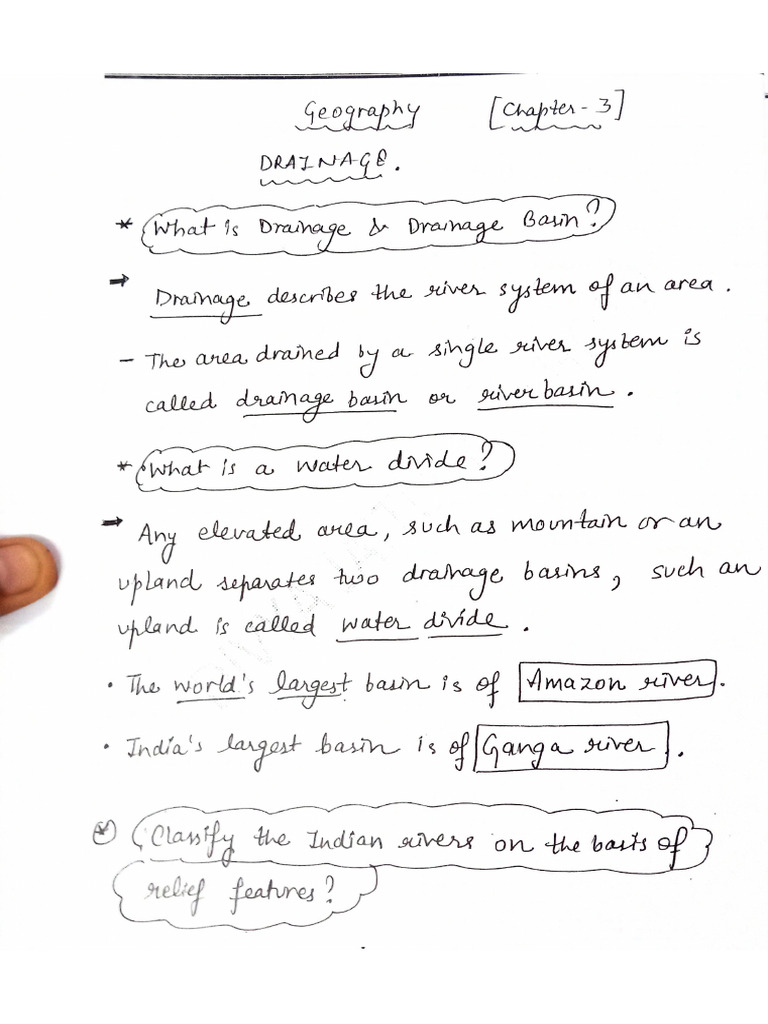 Geography [Chapter - 3]
DRAINAGE.
* What is Drainage & Drainage Basin?
→ Drainage describes the river system of an area.
- The area drained by a single river system is
called drainage basin or river basin.
* What is a water divide?
→ Any elevated area, such as mountain or an
upland separates two drainage basins, such an
upland is called water divide.
• The world's largest basin is of Amazon river.
• India's largest basin is of Ganga river.
* Classify the Indian rivers on the basis of
relief features?